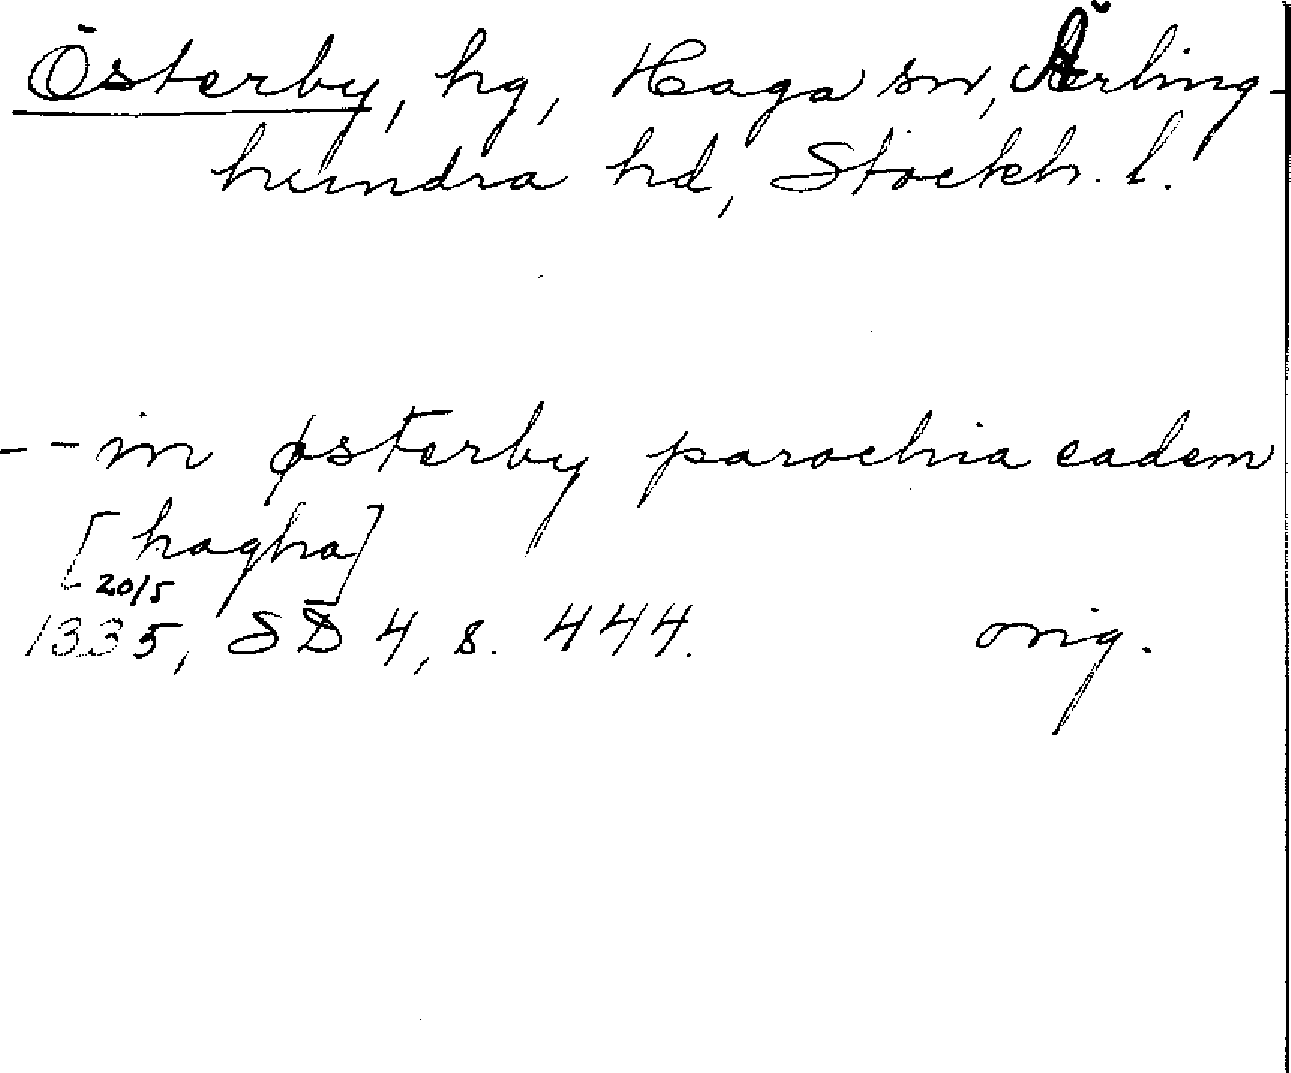 Österby, hg, Haga sn, Ärling-
hundra hd, Stockh. l.
- - in østerby parochia eadem
[hagha]
20/5
1335, SD 4, s. 444. orig.